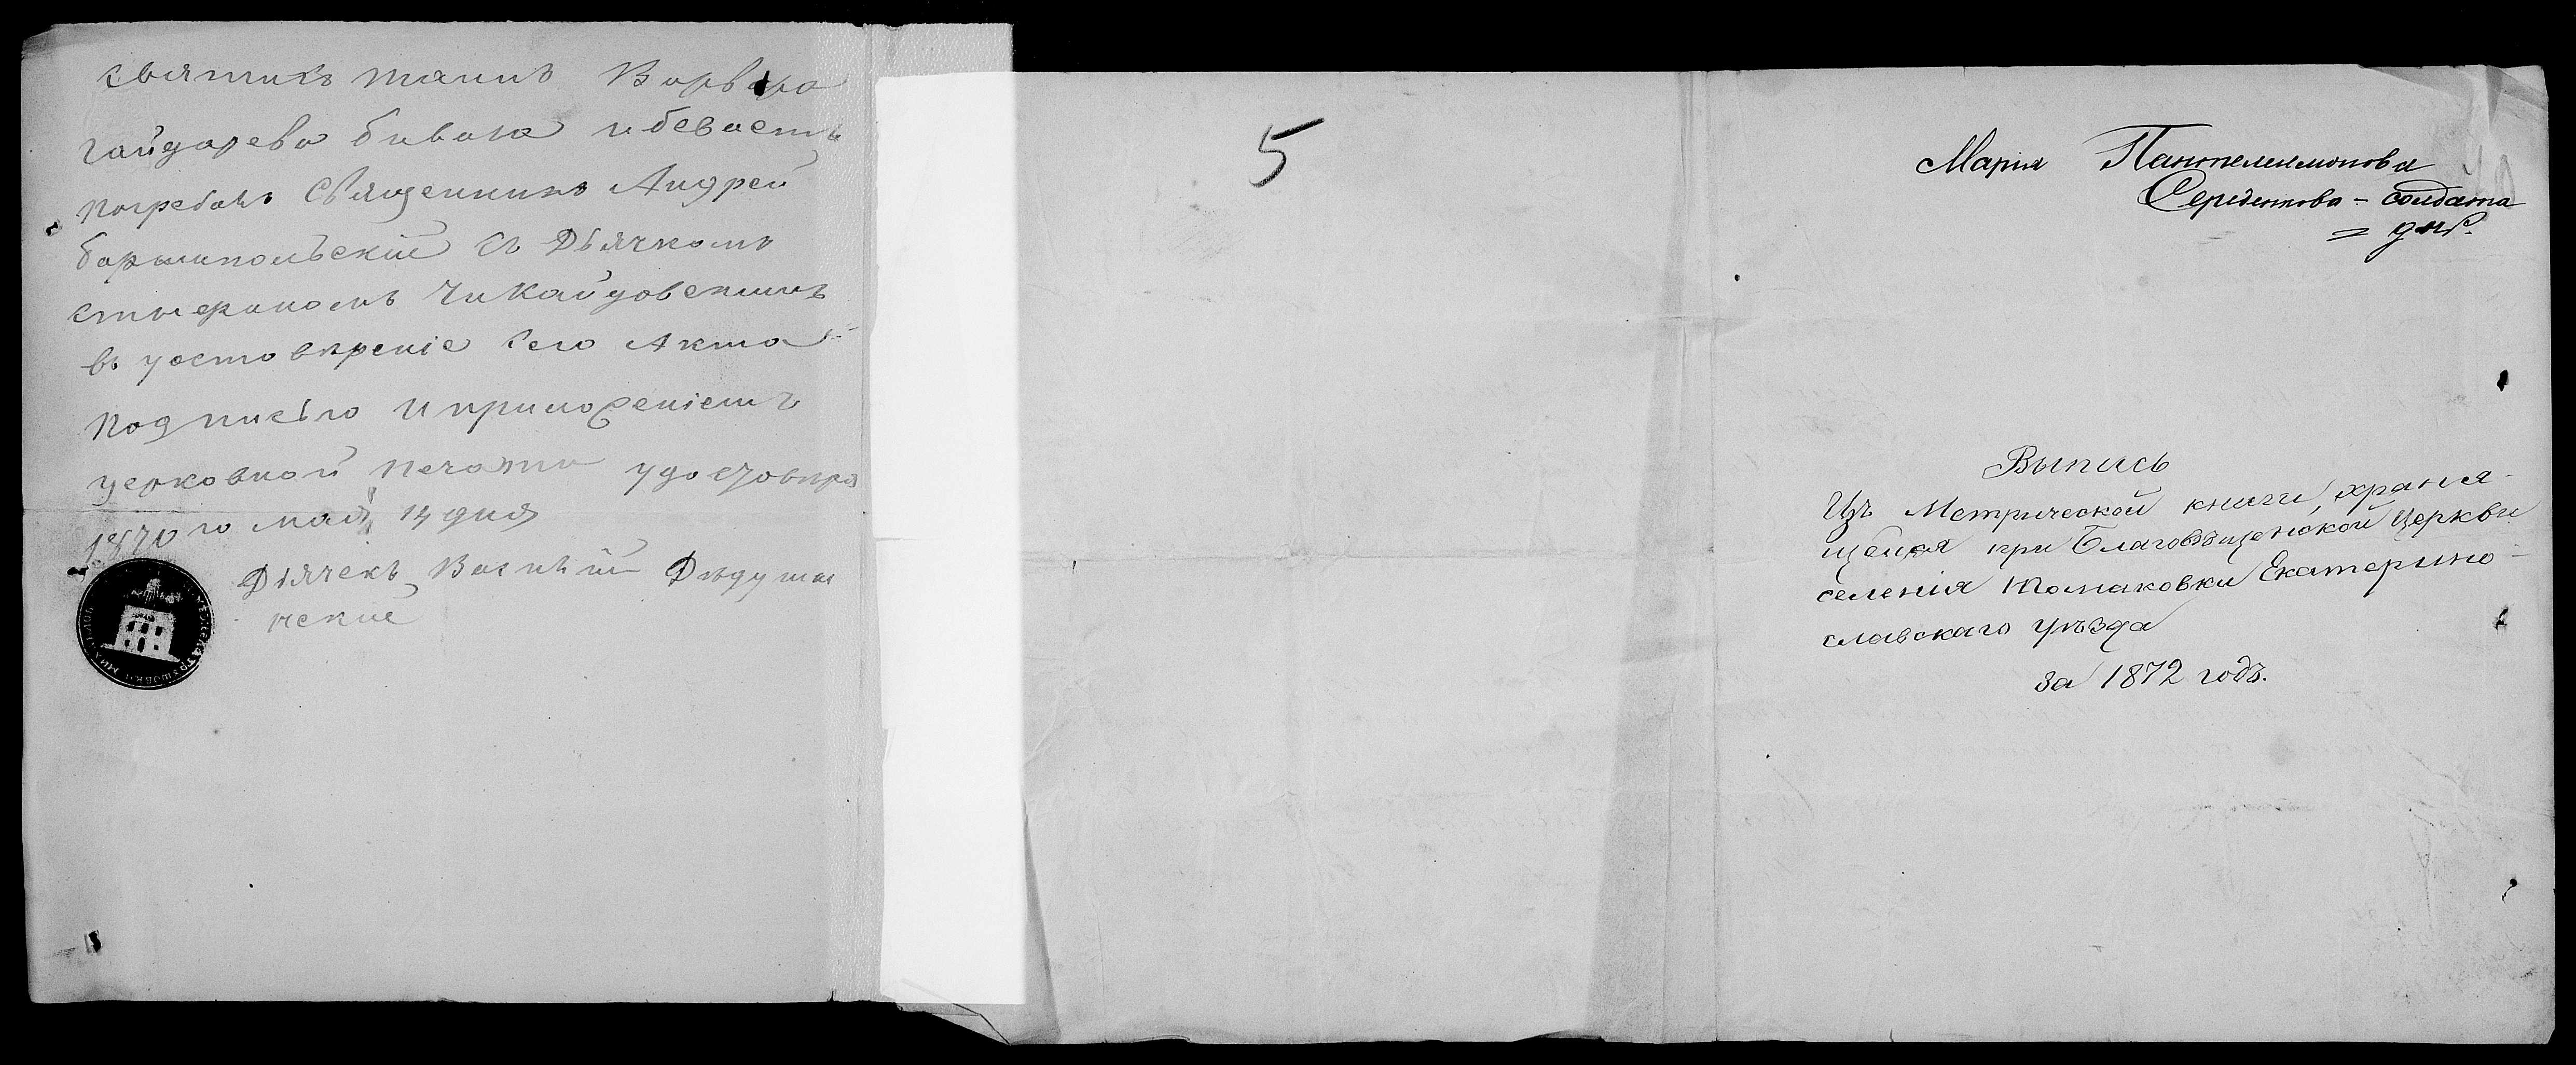 святихъ таинъ Варвара
Гайдарева бивала и беваетъ
погребалъ Священникъ Андрей
Боришпольскій Съ Дьячкомъ
въ устовереніе сего Акта
подписью и приложеніемъ
церковной печати удостовира
1870 го мая 14 дня
Діячекъ Василій Дедушин
ческий
5
Марія Пантелеимонова
Середенкова - солдатка
Выпись
Изъ Метрической книги, храня-
щейся при Благовѣщенской Церкви
селенія Томаковки Екатерино-
славскаго уѣзда
за 1872 годъ.